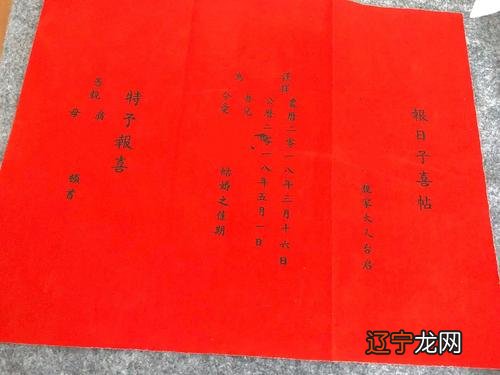 報日子喜帖
親家大人台启
謹择 農曆二零一八年三月十六日
公曆二零一八年五月一日
為
令愛
結婚之佳期
特予報喜
忝親 翁
母
頓首
辽宁龙网